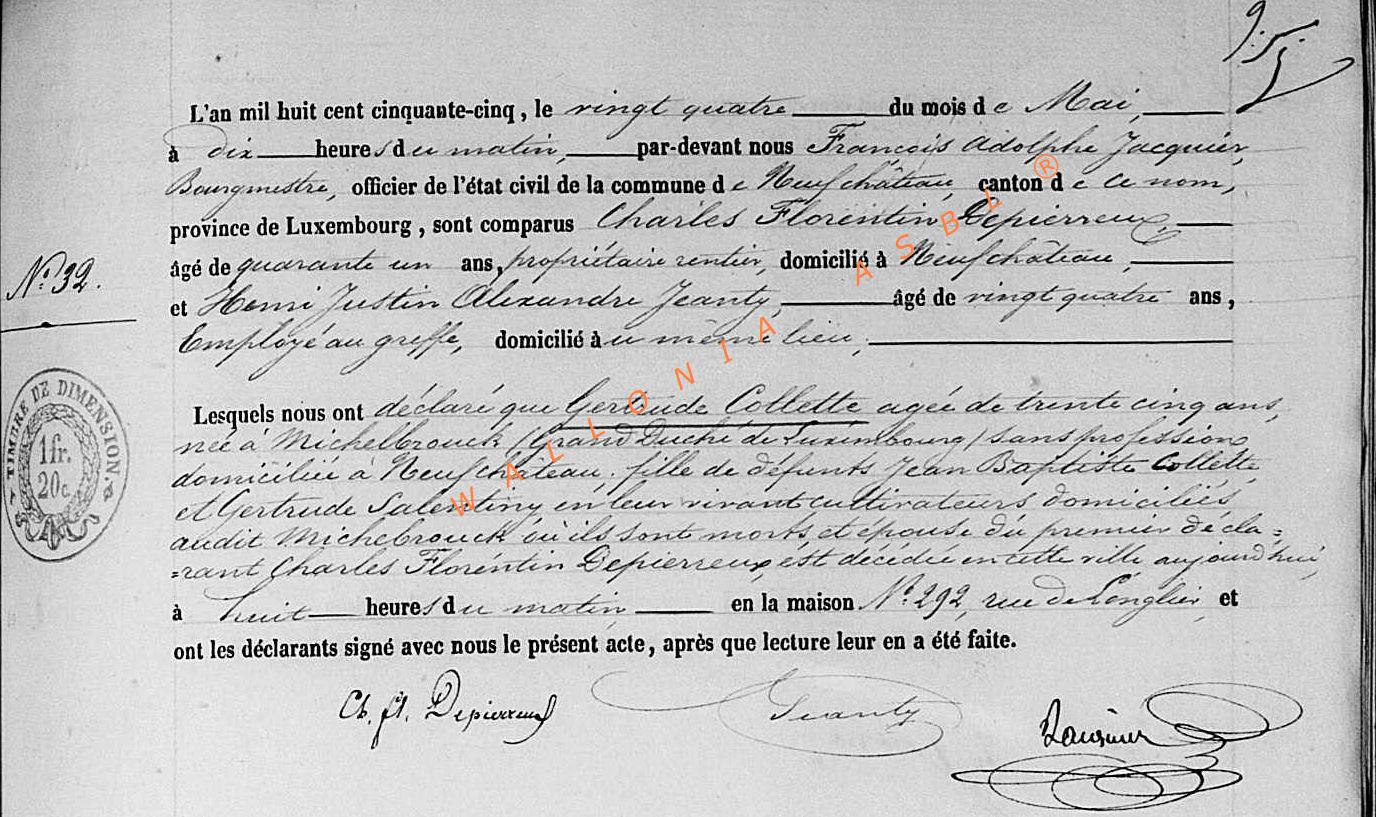 L'an mil huit cent cinquante-cinq, le vingt quatre du mois de Mai,
à dix heures du matin, par-devant nous François Adolphe Jacquier,
Bourgmestre, officier de l'état civil de la commune de Neufchâteau, canton de ce nom,
province de Luxembourg, sont comparus Charles Florentin Depierreux,
âgé de quarante un ans, propriétaire rentier, domicilié à Neufchâteau,
N° 32.
et Henri Justin Alexandre Jeanty, âgé de vingt quatre ans,
Employé au greffe, domicilié au même lieu,
Lesquels nous ont déclaré que Gertrude Collette agée de trente cinq ans,
née à Michelbrouck (Grand Duché de Luxembourg) sans profession
domiciliée à Neufchâteau, fille de défunts Jean Baptiste Collette
et Gertrude Salentiny en leur vivant cultivateurs domiciliés
audit Michebrouck où ils sont morts, et épouse du premier décla=
=rant Charles Florentin Depierreux, est décédée en cette ville aujourd'hui,
à huit heures du matin, en la maison N° 292, rue de Longlier, et
ont les déclarants signé avec nous le présent acte, après que lecture leur en a été faite.
TIMBRE DE DIMENSION.
1 fr.
20 c.
Ch. fl. Depierreux
Jeanty
WALLONIA ASBL ®